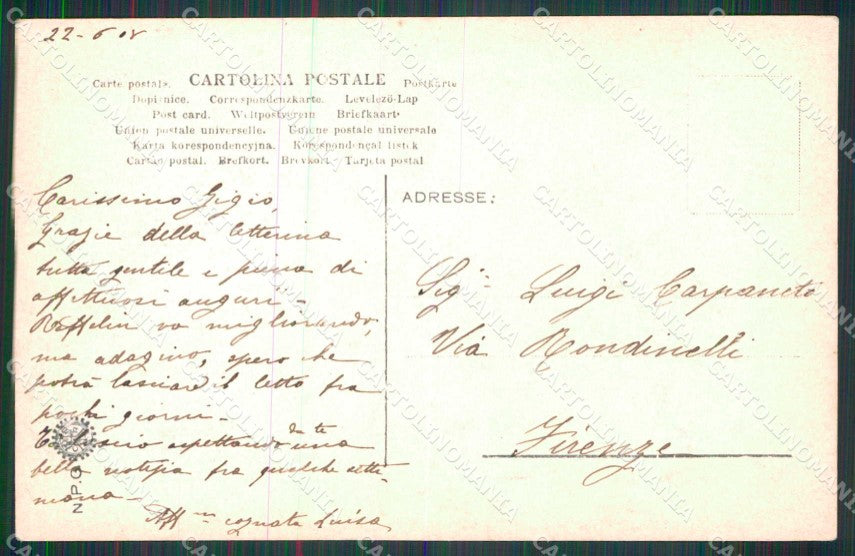 22-6 08
Carte postale. CARTOLINA POSTALE Postkarte
Dopisnice. Correspondenzkarte. Levelező-Lap
Post card. Weltpostverein Briefkaart
Union postale universelle. Unione postale universale
Karta korespondencyjna. Korespondenčal listek
Cartão postal. Brefkort. Brevkort. Tarjeta postal
Carissimo Gigio,
Grazie della letterina
tutta gentile e piena di
affettuosi auguri -
va migliorando,
ma adagino, spero che
potrà lasciare il letto fra
pochi giorni -
Ti lascio aspettando da te una
bella notizia fra qualche setti-
mana -
Aff.ma cognata Luisa
N.P.G
ADRESSE:
Sig. Luigi Carpaneto
Via Rondinelli
Firenze
CARTOLINOMANIA